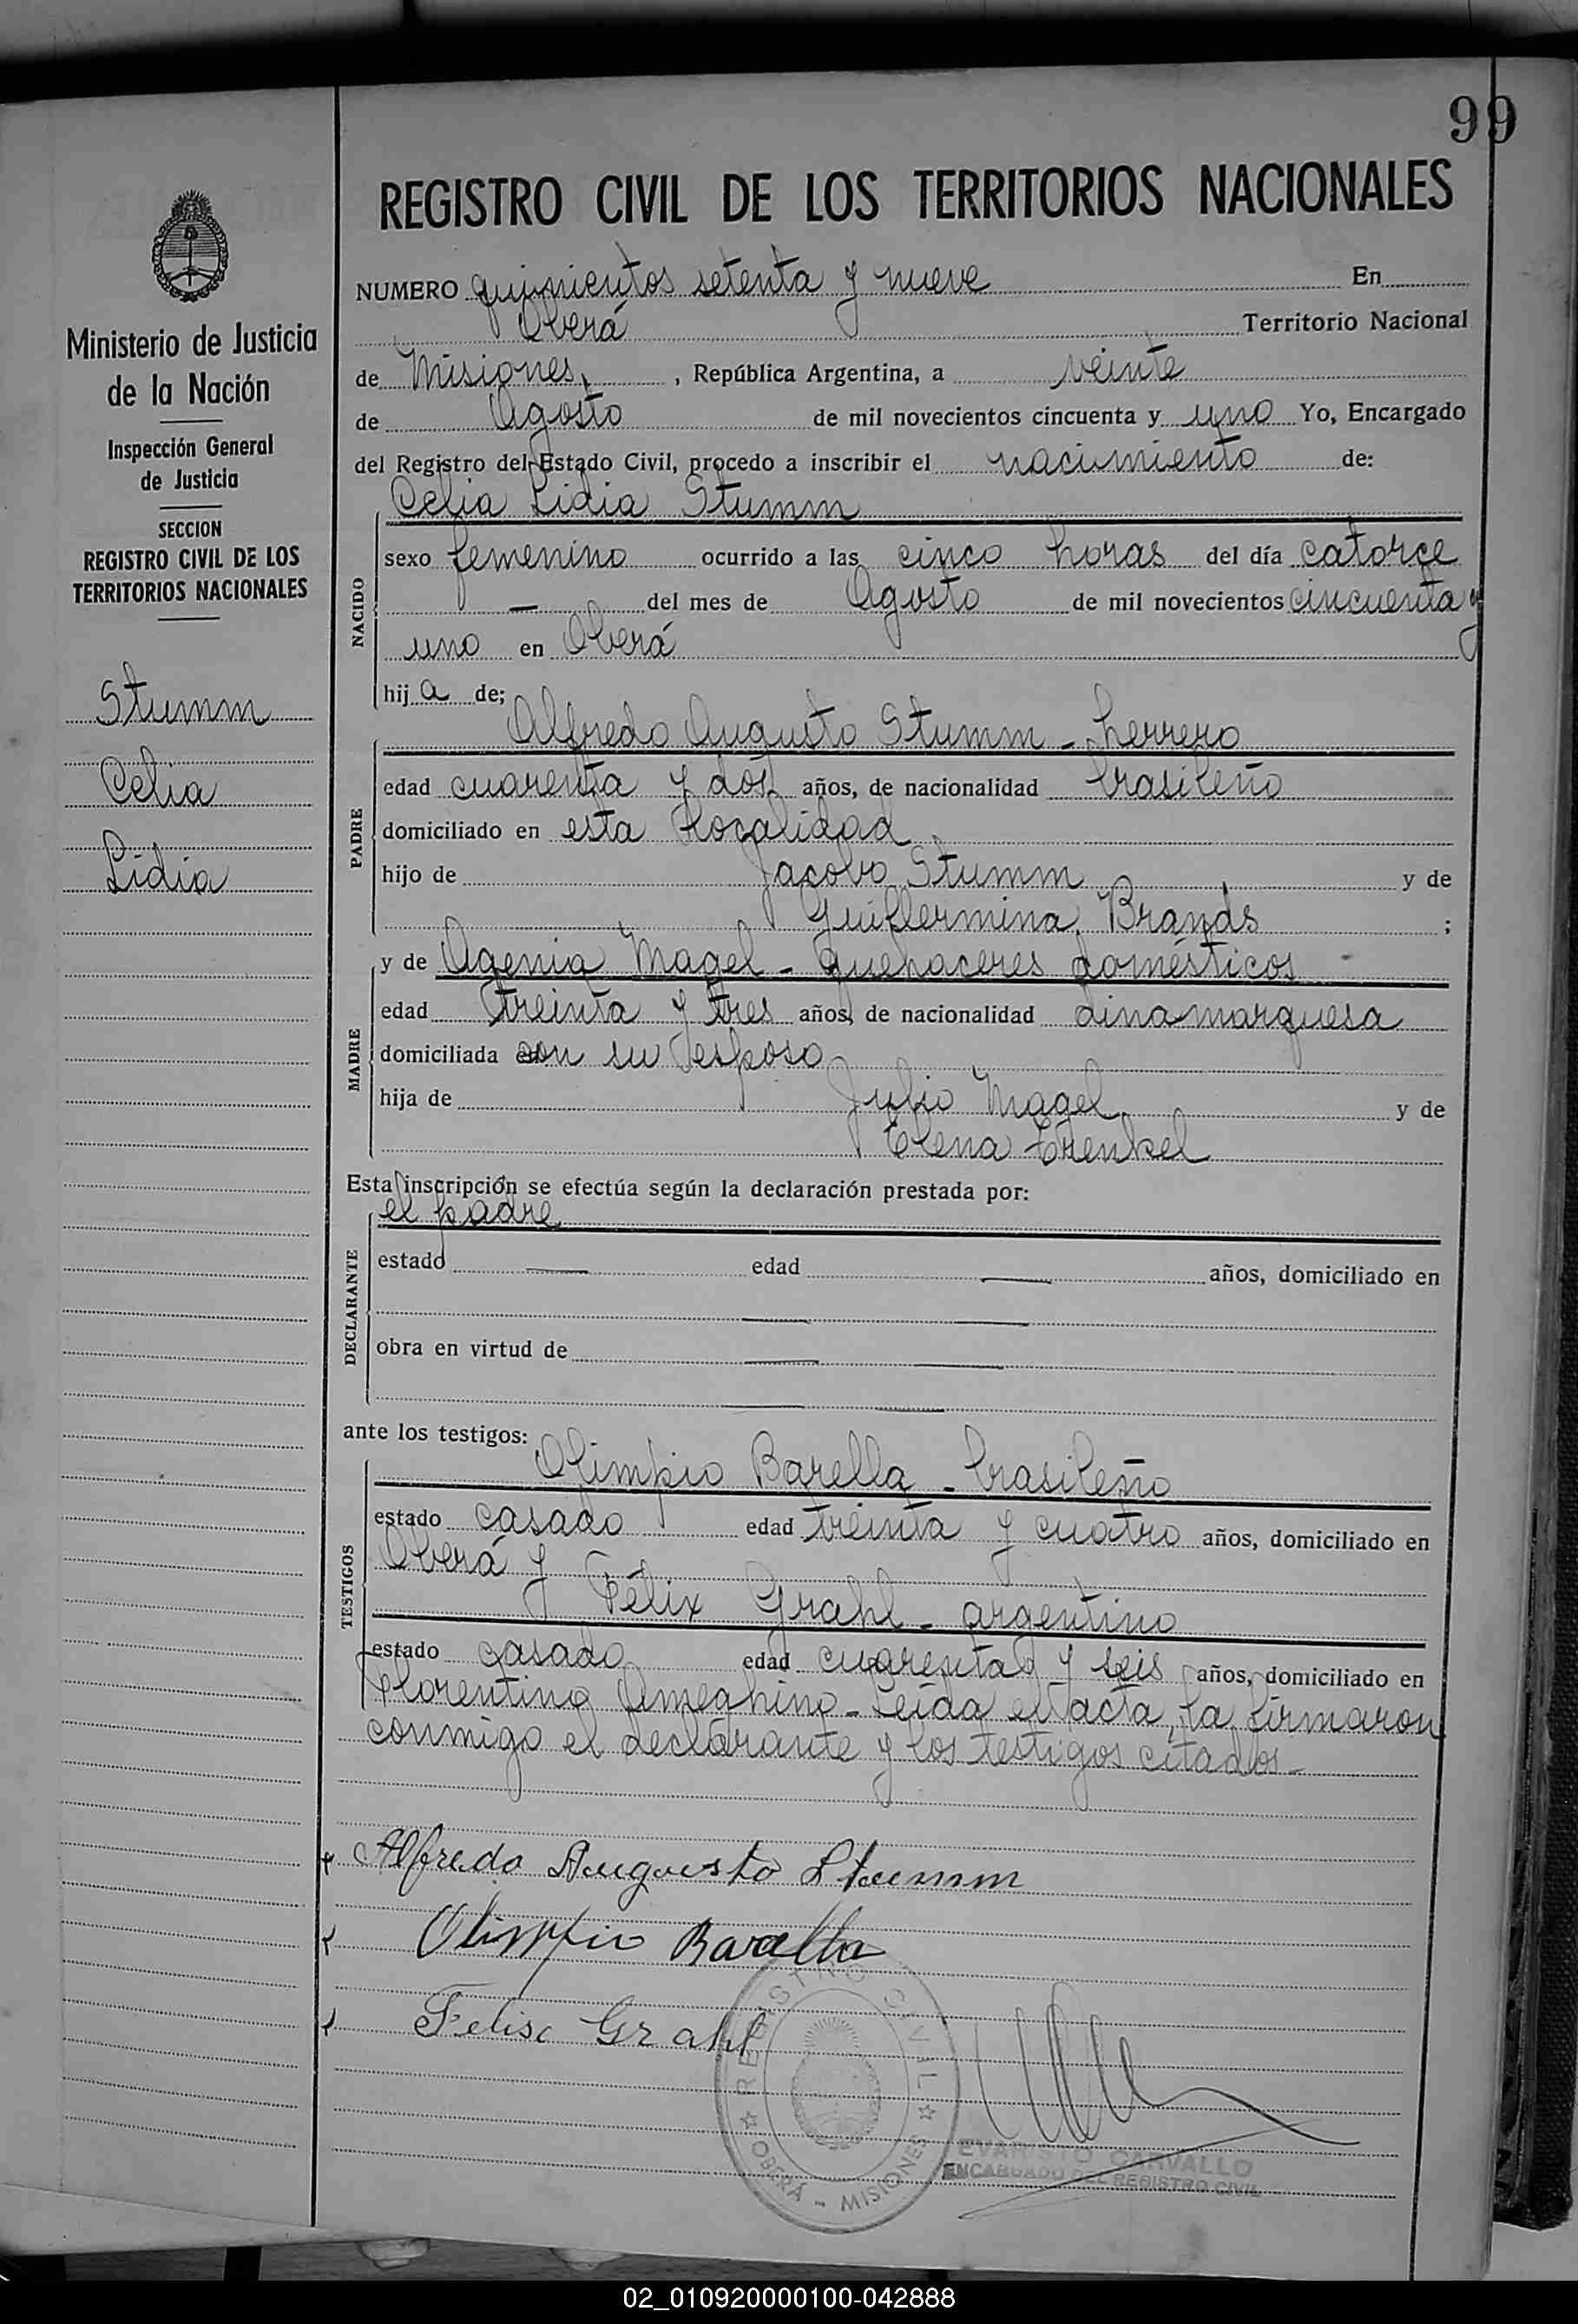 99
REGISTRO CIVIL DE LOS TERRITORIOS NACIONALES
Ministerio de Justicia
de la Nación
Inspección General
de Justicia
SECCION
REGISTRO CIVIL DE LOS
TERRITORIOS NACIONALES
Stumm
Celia
Lidia
NUMERO quinientos setenta y nueve En
Oberá Territorio Nacional
de Misiones, , República Argentina, a veinte
de Agosto de mil novecientos cincuenta y uno Yo, Encargado
del Registro del Estado Civil, procedo a inscribir el nacimiento de:
Celia Lidia Stumm
NACIDO
sexo femenino ocurrido a las cinco horas del día catorce
— del mes de Agosto de mil novecientos cincuenta y
uno en Oberá
hij a de;
Alfredo Augusto Stumm - herrero
PADRE
edad cuarenta y dos años, de nacionalidad brasileño
domiciliado en esta localidad
hijo de Jacobo Stumm y de
Guillermina Brands ;
y de Agenia Magel - quehaceres domésticos
MADRE
edad treinta y tres años, de nacionalidad dinamarquesa
domiciliada con su esposo
hija de Julio Magel y de
Elena Trenkel
Esta inscripción se efectúa según la declaración prestada por:
el padre
DECLARANTE
estado — edad — años, domiciliado en
— —
obra en virtud de — —
— —
ante los testigos:
Olimpio Barella - brasileño
TESTIGOS
estado casado edad treinta y cuatro años, domiciliado en
Oberá y
Félix Grahl - argentino
estado casado edad cuarenta y seis años, domiciliado en
Florentino Ameghino - Leída el acta, la firmaron
conmigo el declarante y los testigos citados -
Alfredo Augusto Stumm
Olimpio Barella
Felise Grahl
REGISTRO CIVIL
OBERÁ - MISIONES
EVARISTO CARVALLO
ENCARGADO DEL REGISTRO CIVIL
02_010920000100-042888